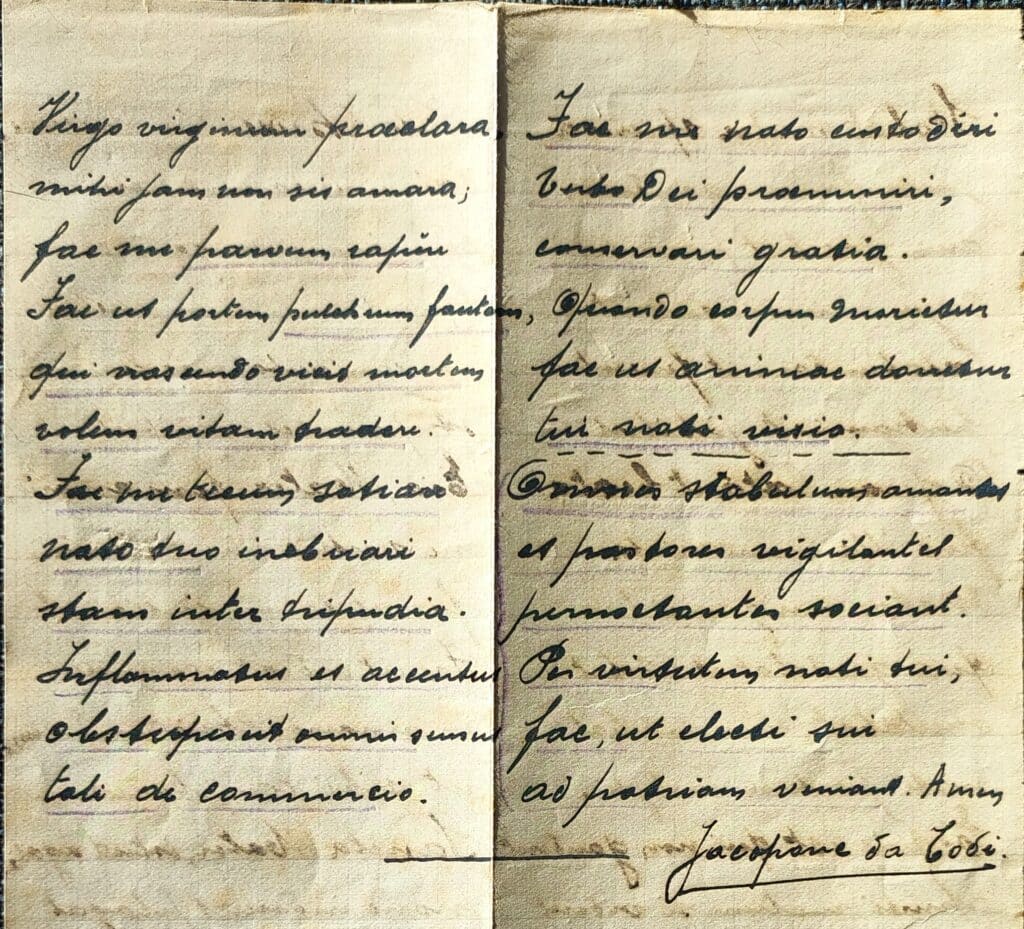 Virgo virginum praeclara,
mihi jam non sis amara;
fac me parvum rapere
Fac ut portem pulchrum fantem,
qui nascendo vicit mortem
volens vitam tradere.
Fac me tecum satiari
nato tuo inebriari
stans inter tripudia.
Inflammatus et accensus
obstupescit omnis sensus
tali de commercio.
Fac me nato custodiri
Verbo Dei praemuniri,
conservari gratia.
Quando corpus morietur
fac ut animae donetur
tui nati visio.
Omnes stabulum amantes
et pastores vigilantes
pernoctantes sociant.
Per virtutem nati tui,
fac, ut electi sui
ad patriam veniant. Amen
Jacopone da Todi.